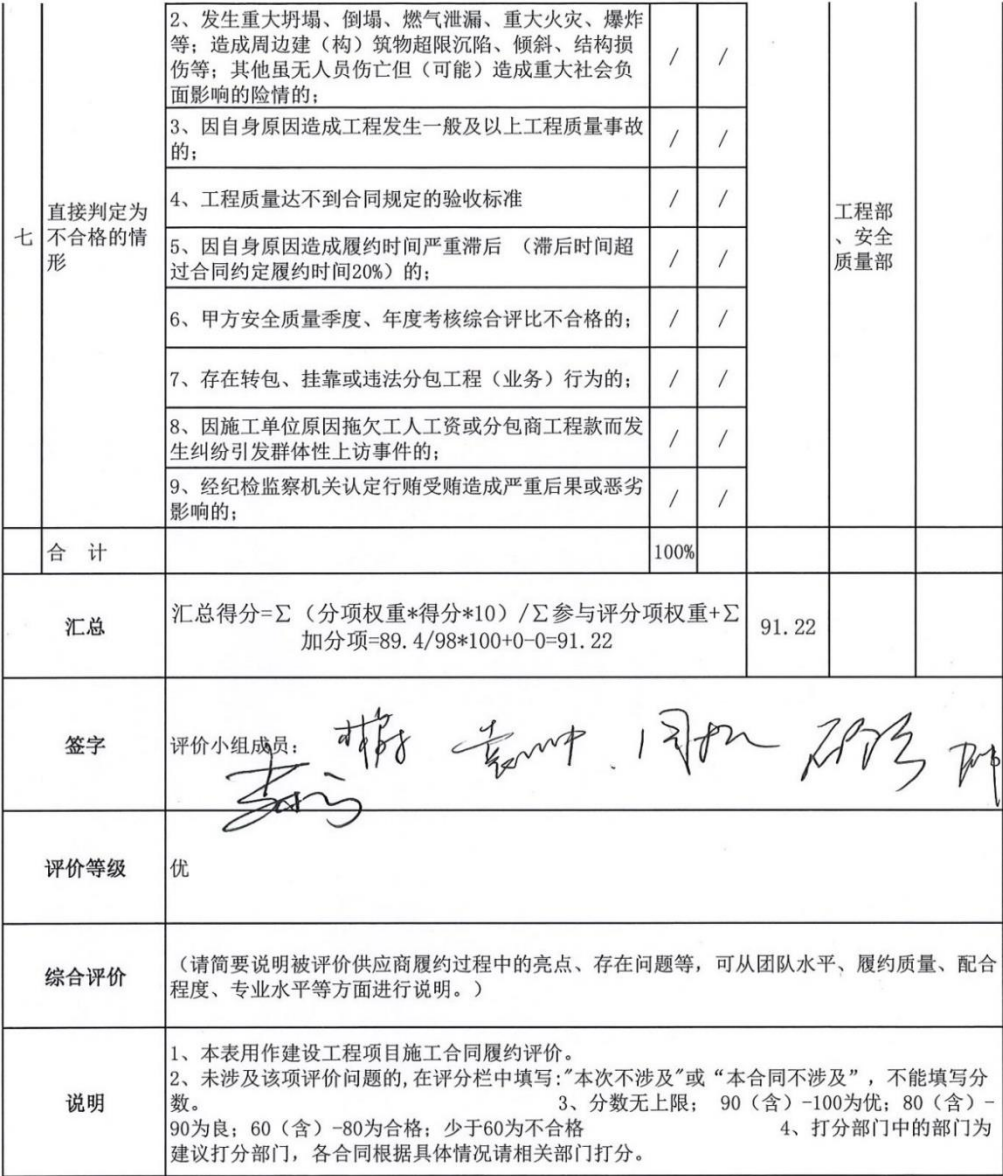 2、发生重大坍塌、倒塌、燃气泄漏、重大火灾、爆炸
等；造成周边建（构）筑物超限沉陷、倾斜、结构损
伤等；其他虽无人员伤亡但（可能）造成重大社会负
面影响的险情的；
/ /
3、因自身原因造成工程发生一般及以上工程质量事故
的；
/ /
4、工程质量达不到合同规定的验收标准
/ /
七
直接判定为
不合格的情
形
5、因自身原因造成履约时间严重滞后 （滞后时间超
过合同约定履约时间20%）的；
/ /
工程部
、安全
质量部
6、甲方安全质量季度、年度考核综合评比不合格的；
/ /
7、存在转包、挂靠或违法分包工程（业务）行为的；
/ /
8、因施工单位原因拖欠工人工资或分包商工程款而发
生纠纷引发群体性上访事件的；
/ /
9、经纪检监察机关认定行贿受贿造成严重后果或恶劣
影响的；
/ /
合 计 100%
汇总
汇总得分=∑（分项权重*得分*10）/∑参与评分项权重+∑
加分项=89.4/98*100+0-0=91.22
91.22
签字
评价小组成员：
评价等级
优
综合评价
（请简要说明被评价供应商履约过程中的亮点、存在问题等，可从团队水平、履约质量、配合
程度、专业水平等方面进行说明。）
说明
1、本表用作建设工程项目施工合同履约评价。
2、未涉及该项评价问题的,在评分栏中填写:"本次不涉及"或“本合同不涉及”，不能填写分
数。 3、分数无上限； 90（含）-100为优；80（含）-
90为良；60（含）-80为合格；少于60为不合格 4、打分部门中的部门为
建议打分部门，各合同根据具体情况请相关部门打分。